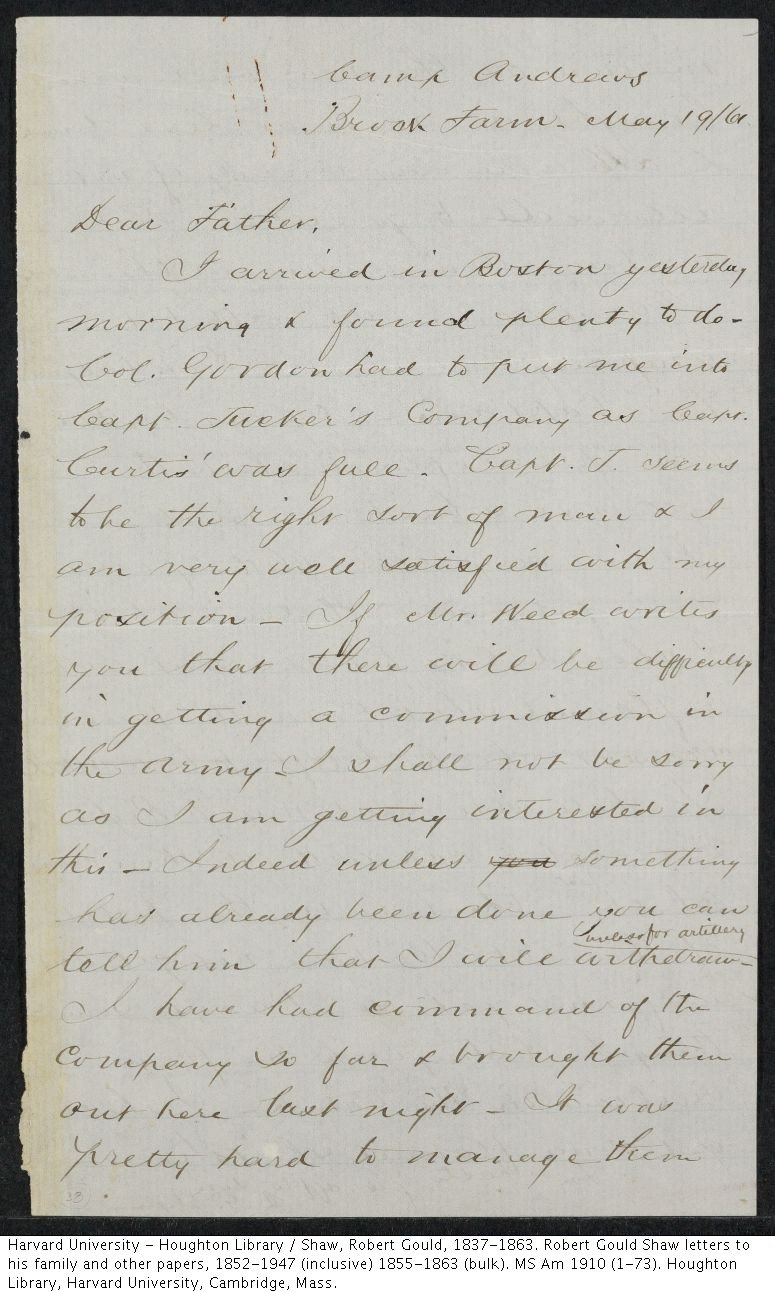 Camp Andrews
Brook Farm - May 19/61
Dear Father,
I arrived in Boston yesterday
morning & found plenty to do -
Col. Gordon had to put me into
Capt. Tucker's Company as Capt.
Curtis' was full. Capt. T. seems
to be the right sort of man & I
am very well satisfied with my
position - If Mr. Weed writes
you that there will be difficulty
in getting a commission in
the army - I shall not be sorry
as I am getting interested in
this - Indeed unless you something
has already been done you can
unless for artillery
tell him that I will withdraw -
I have had command of the
Company so far & brought them
out here last night - It was
pretty hard to manage them
Harvard University - Houghton Library / Shaw, Robert Gould, 1837-1863. Robert Gould Shaw letters to
his family and other papers, 1852-1947 (inclusive) 1855-1863 (bulk). MS Am 1910 (1-73). Houghton
Library, Harvard University, Cambridge, Mass.